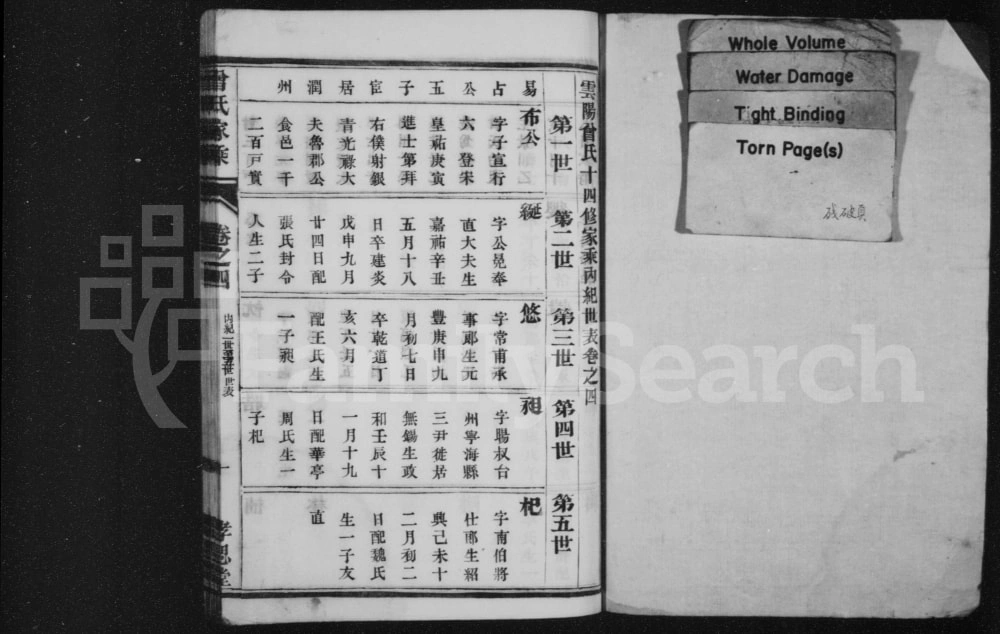 Whole Volume
Water Damage
Tight Binding
Torn Page(s)
残破頁
雲陽曾氏十四修家乘內紀世表卷之四
第一世
第二世
第三世
第四世
第五世
易占公五子宦居潤州
布公
字子宣行
六 登宋
皇祐庚寅
進士第拜
右僕射銀
青光祿大
夫魯郡公
食邑一千
二百戶實
綖
字公冕奉
直大夫生
嘉祐辛丑
五月十八
日卒建炎
戊申九月
廿四日配
張氏封令
人生二子
悠
字常甫承
事郎生元
豐庚申九
月初七日
卒乾道丁
亥六月五
日配王氏生
一子
字暘叔台
州寧海縣
三尹徙居
無錫生政
和壬辰十
一月十九
日配華亭
周氏生一
子杞
杞
字南伯將
仕郎生紹
興己未十
二月初二
日配魏氏
生一子友
直
曾氏家乘
卷之四
內紀一世至五世世表
一
孝思堂
FamilySearch